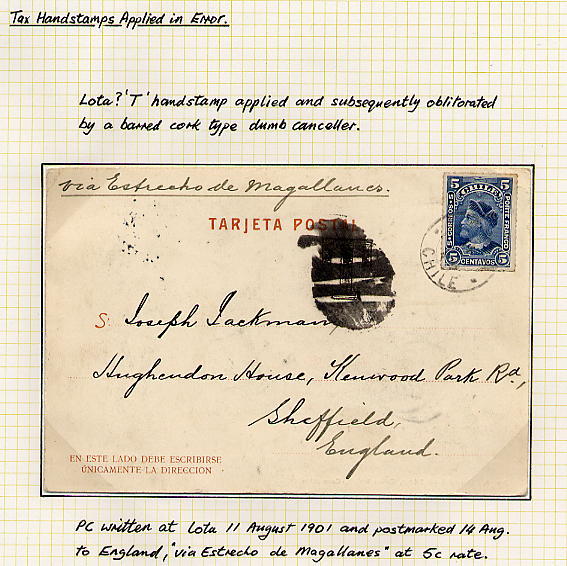 Tax Handstamps Applied in Error.
Lota? 'T' handstamp applied and subsequently obliterated
by a barred cork type dumb canceller.
via Estrecho de Magallanes.
TARJETA POSTAL
5 CHILE 5
CORREOS
PORTE FRANCO
5 CENTAVOS 5
CHILE
S: Joseph Jackman
Hughendon House, Kenwood Park Rd,
Sheffield,
England.
EN ESTE LADO DEBE ESCRIBIRSE
ÚNICAMENTE LA DIRECCION
PC written at Lota 11 August 1901 and postmarked 14 Aug.
to England, "via Estrecho de Magallanes" at 5c rate.